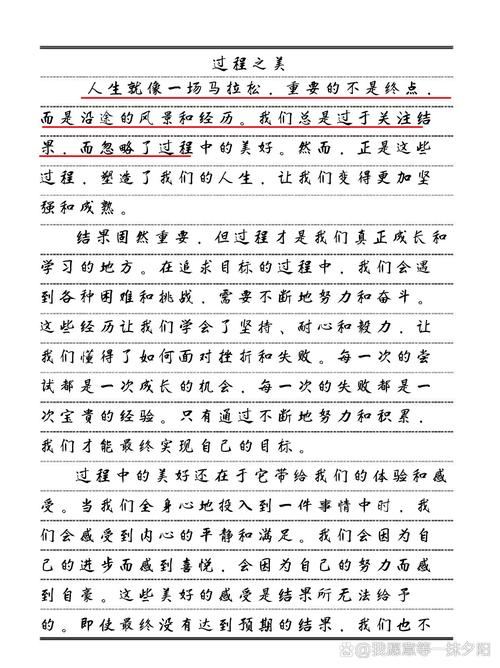 过程之美
人生就像一场马拉松，重要的不是终点，
而是沿途的风景和经历。我们总是过于关注结
果，而忽略了过程中的美好。然而，正是这些
过程，塑造了我们的人生，让我们变得更加坚
强和成熟。
结果固然重要，但过程才是我们真正成长和
学习的地方。在追求目标的过程中，我们会遇
到各种困难和挑战，需要不断地努力和奋斗。
这些经历让我们学会了坚持、耐心和毅力，让
我们懂得了如何面对挫折和失败。每一次的尝
试都是一次成长的机会，每一次的失败都是一
次宝贵的经验。只有通过不断地努力和积累，
我们才能最终实现自己的目标。
过程中的美好还在于它带给我们的体验和感
受。当我们全身心地投入到一件事情中时，我
们会感受到内心的平静和满足。我们会因为自
己的进步而感到喜悦，会因为自己的努力而感
到自豪。这些美好的感受是结果所无法给予
的。即使最终没有达到预期的结果，我们也不
@我愿意等一抹夕阳